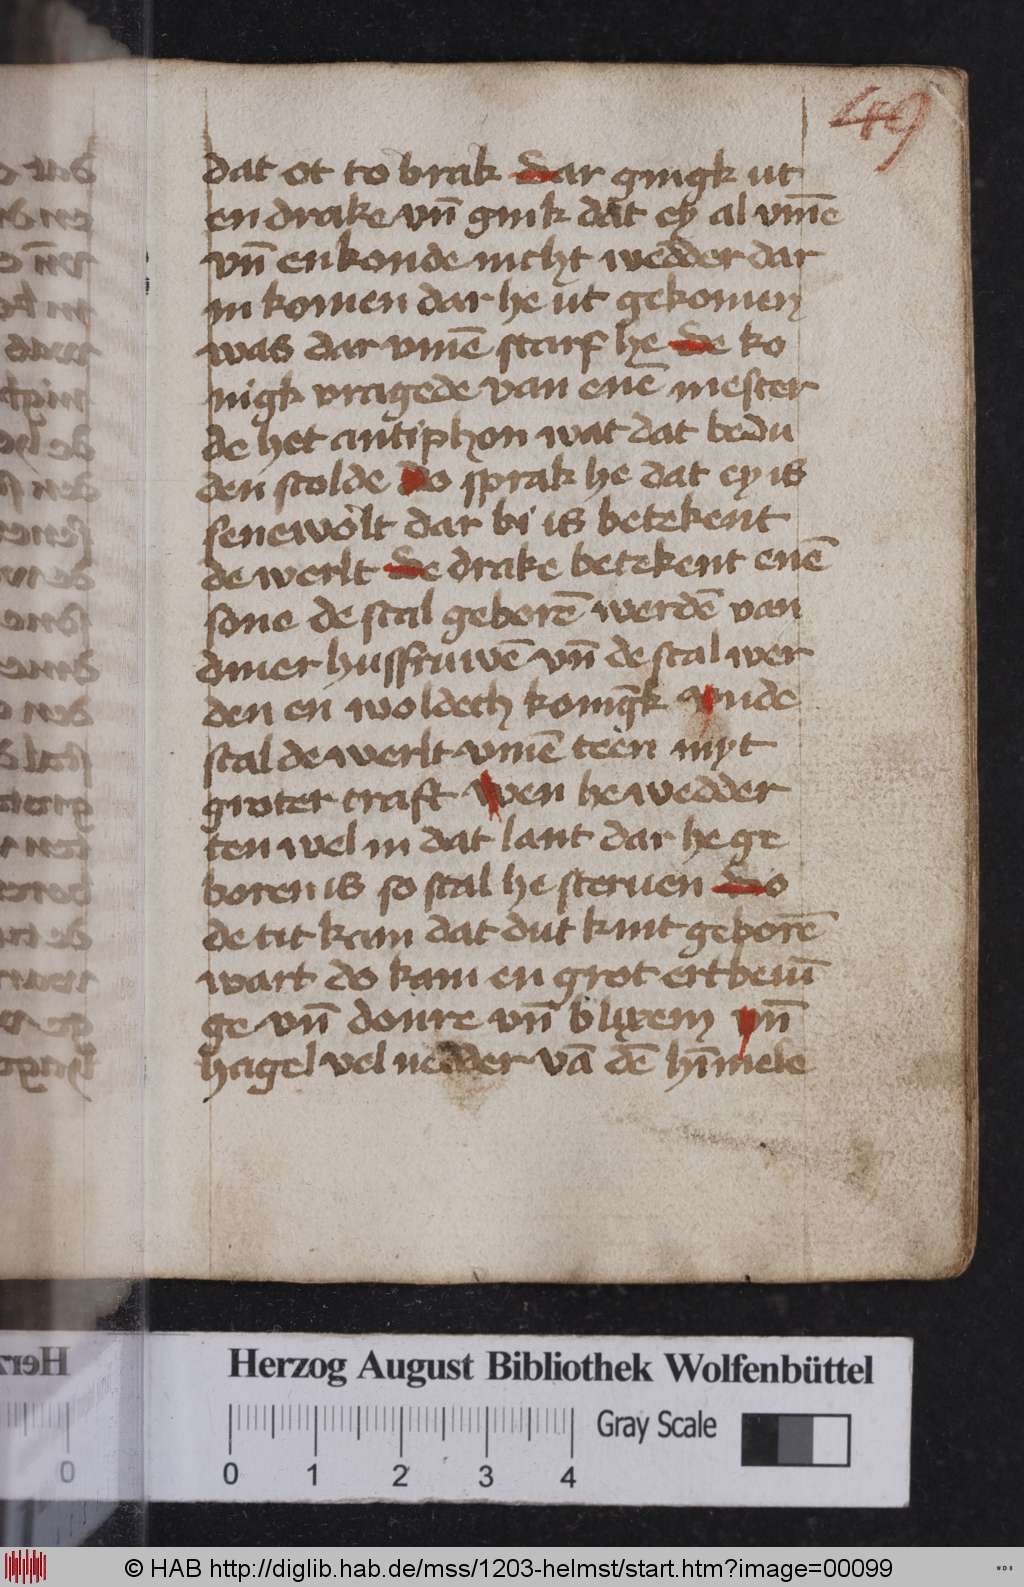 49
dat ot to brak dar gingk ut
en drake vn̄ gink dat ey al vm̄e
vn̄ enkonde nicht wedder dar
in komen dar he ut gekomen
was dar vm̄e starf he de ko
nigk vragede van enē mester
de het antiphon wat dat bedu
den scolde do sprak he dat ey is
senewolt dar bi is betekent
de werlt de drake betekent enē
sone de scal geborē werdē van
diner husfruwē vn̄ de scal wer
den en woldech konigk vnde
scal de werlt vm̄e teen myt
groter craft wen he wedder
ten wel in dat lant dar he ge
boren is so scal he steruen do
de tit kam dat dut kint geborē
wart do kam en grot ertbeuī
ge vn̄ donre vn̄ blixem vn̄
hagel vel nedder vā dē hīmele
Herzog August Bibliothek Wolfenbüttel
0 1 2 3 4
Gray Scale
© HAB http://diglib.hab.de/mss/1203-helmst/start.htm?image=00099